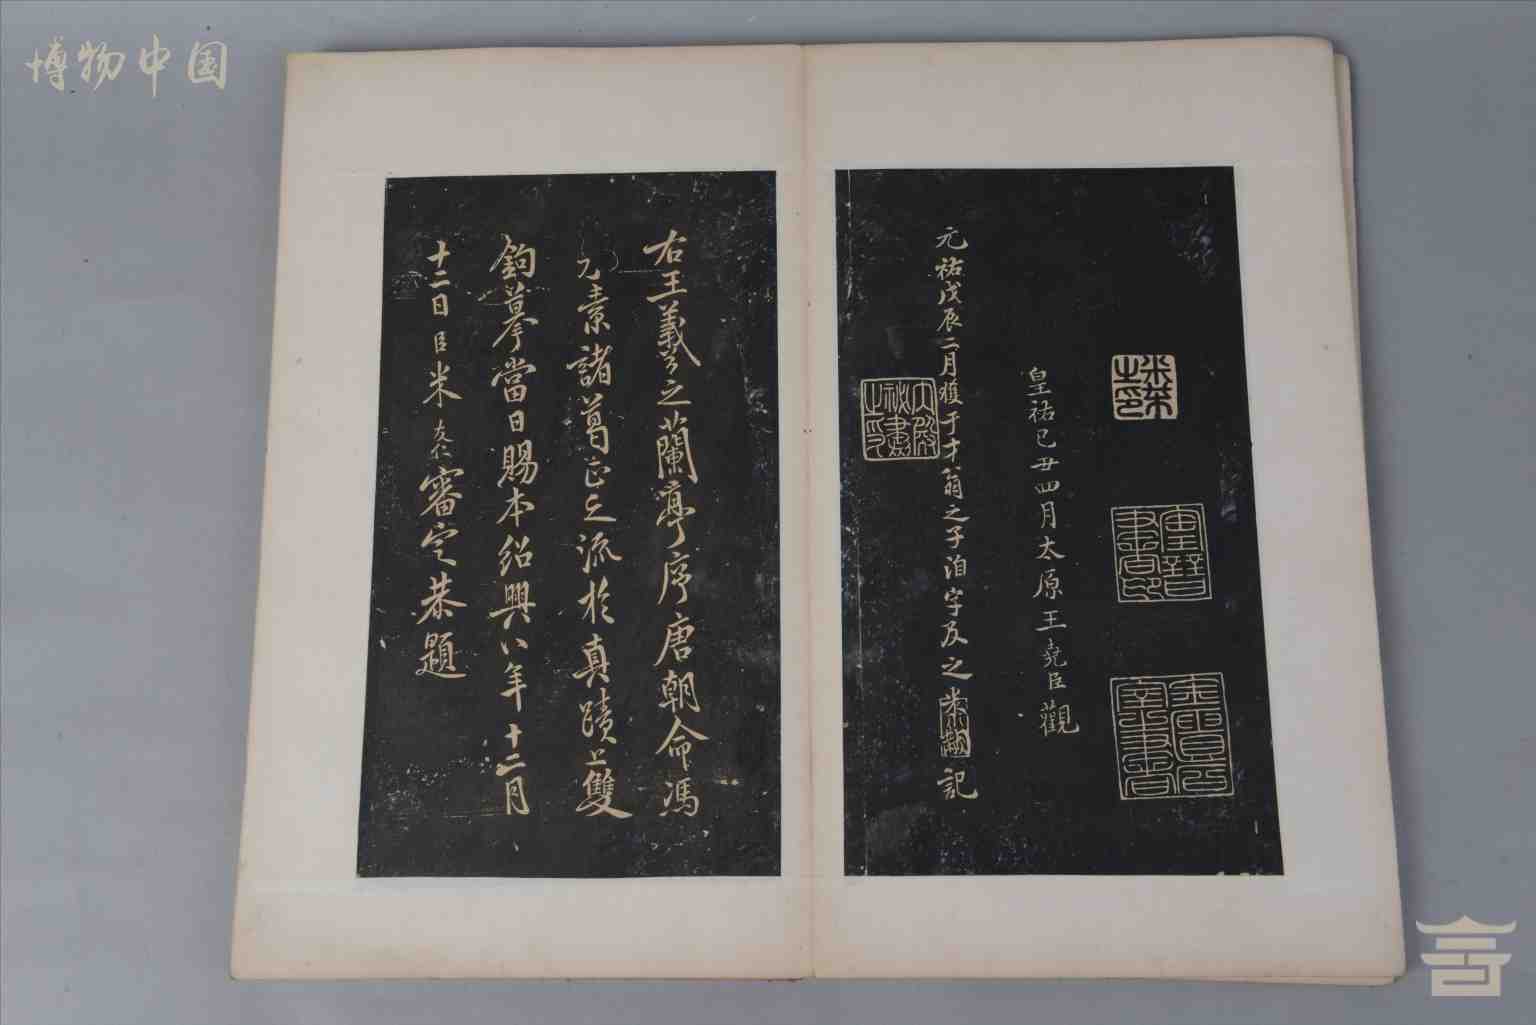 博物中国
米黻之印
皇祐己丑四月太原王堯臣觀
元祐戊辰二月獲于才翁之子洎字及之米黻記
右王羲之蘭亭序唐朝命馮
承素諸葛正之流於真蹟上雙
鉤摹當日賜本紹興八年十二月
十二日臣米友仁審定恭題